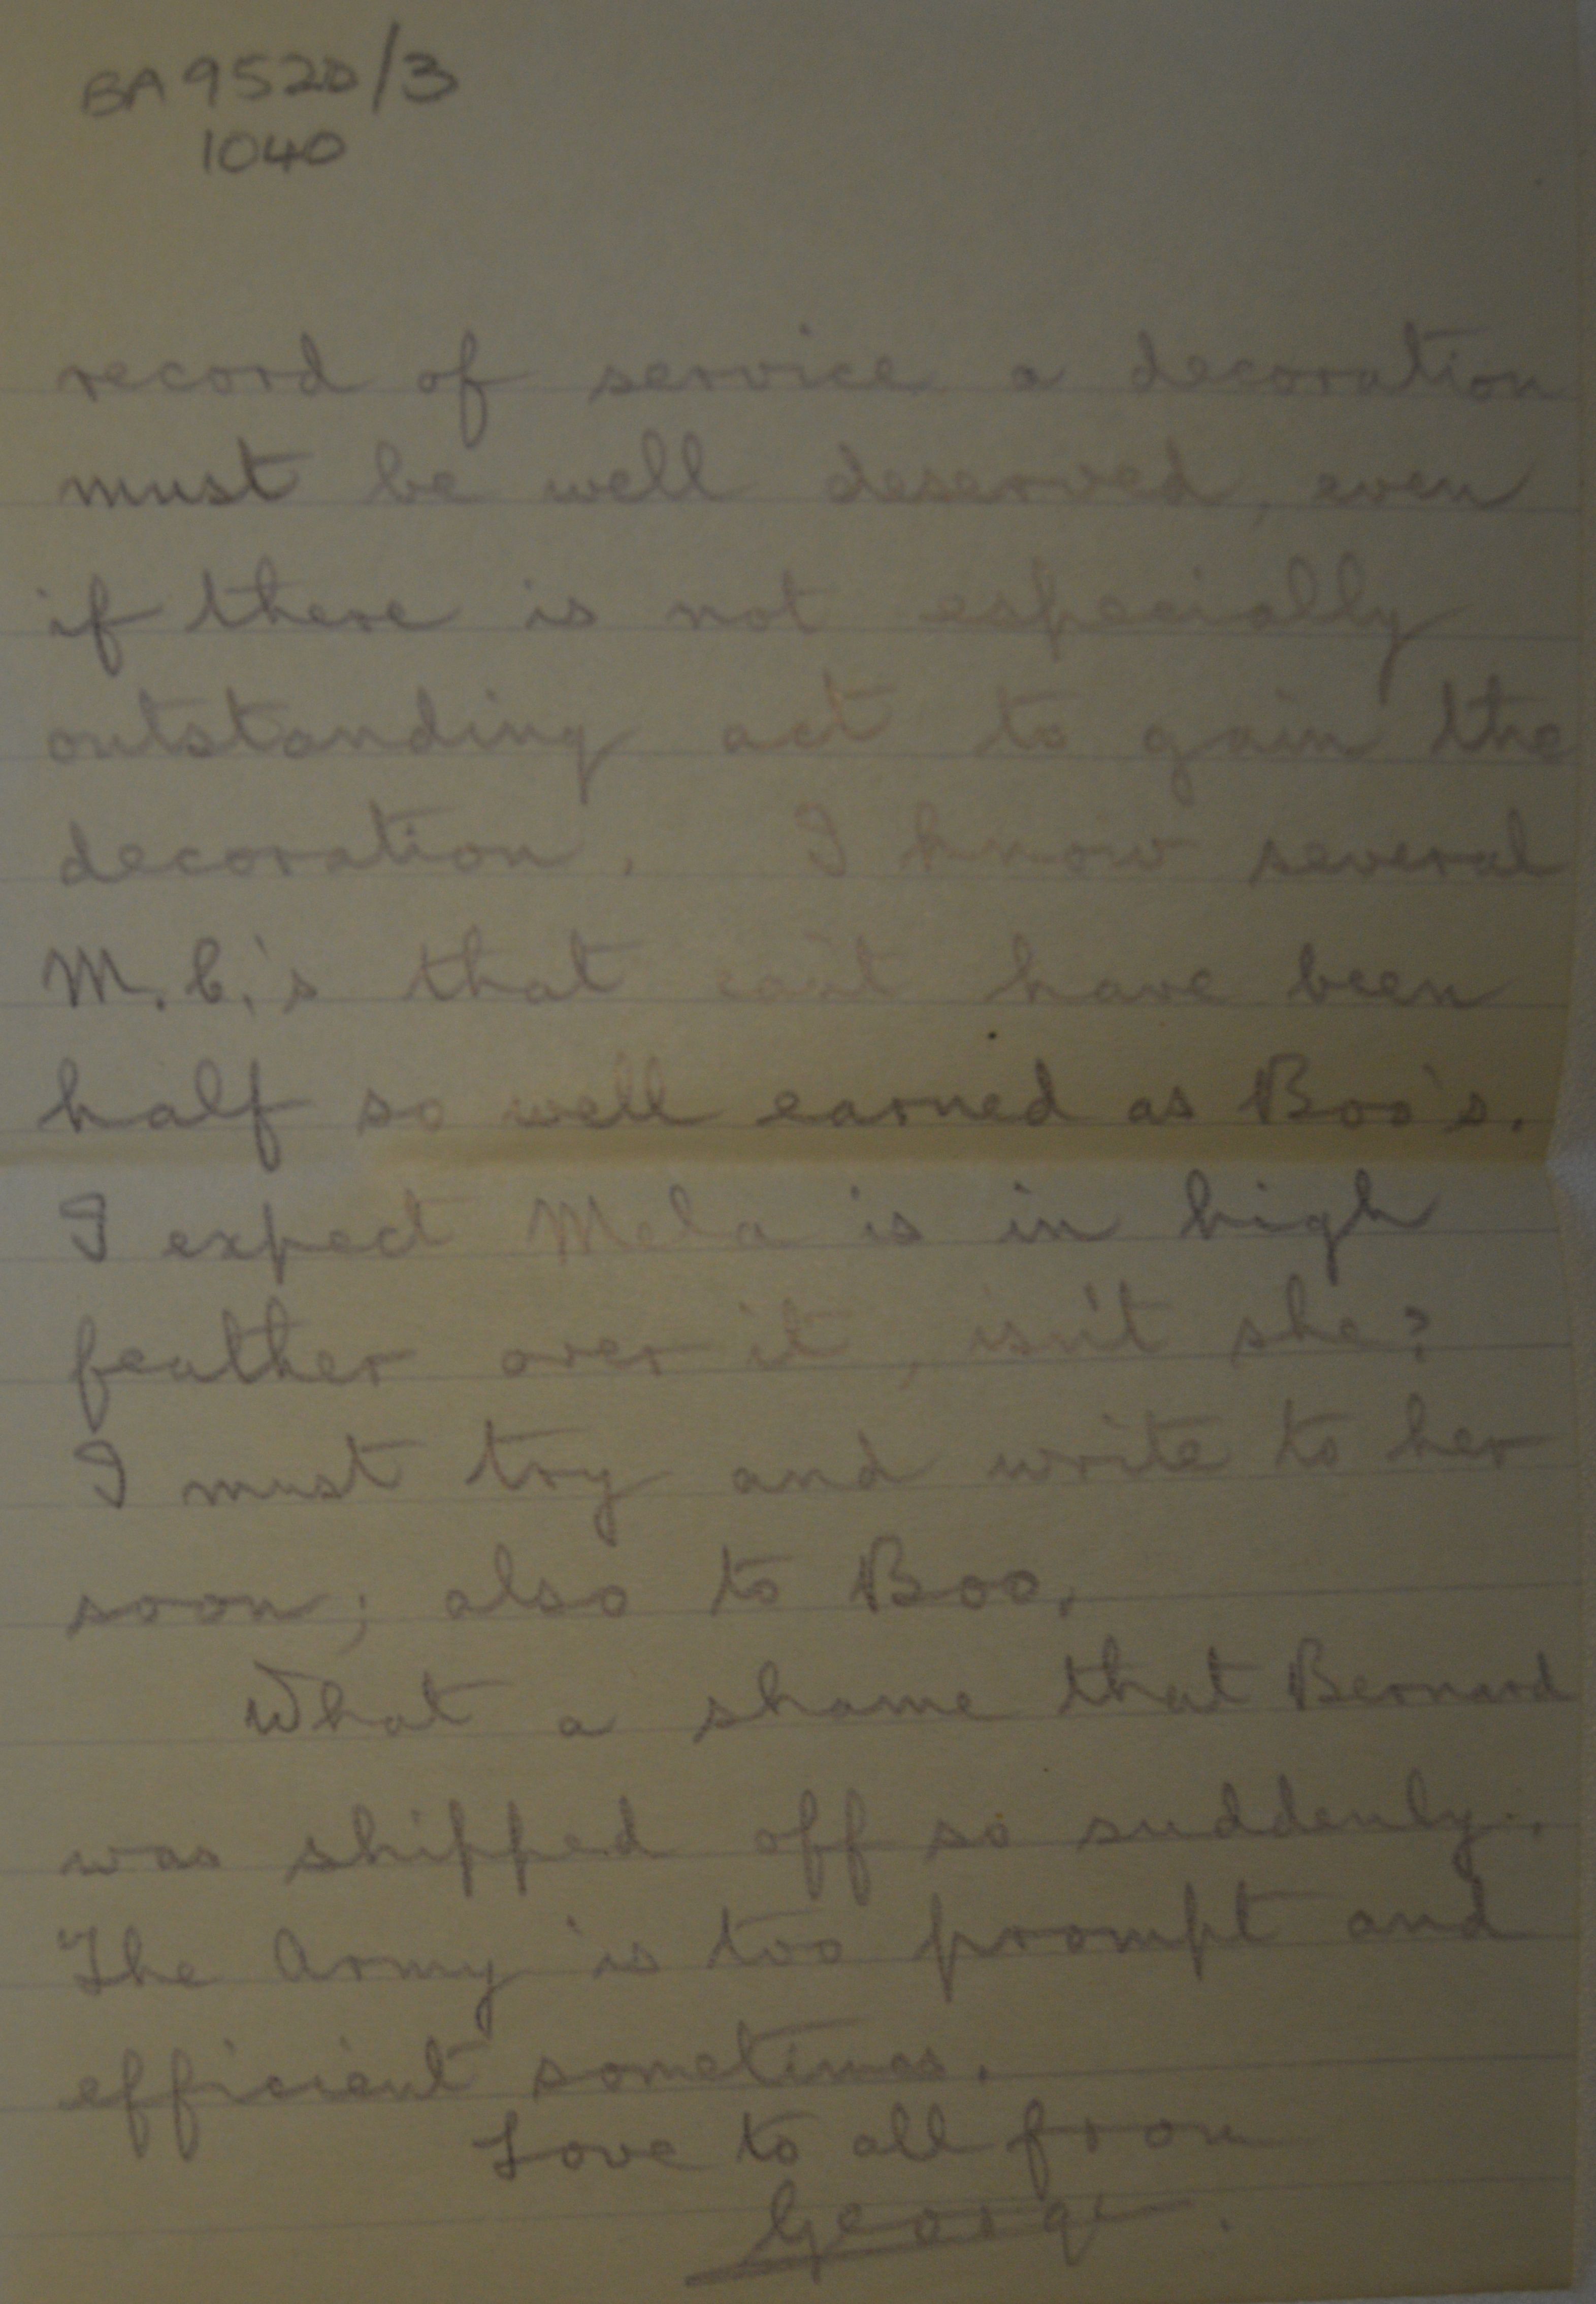 BA 9520/3
1040
record of service a decoration
must be well deserved, even
if there is not especially
outstanding act to gain the
decoration. I know several
M.C.'s that can't have been
half so well earned as Boo's.
I expect Mela is in high
feather over it, isn't she?
I must try and write to her
soon; also to Boo.
What a shame that Bernard
was shipped off so suddenly.
The Army is too prompt and
efficient sometimes.
Love to all from
George.